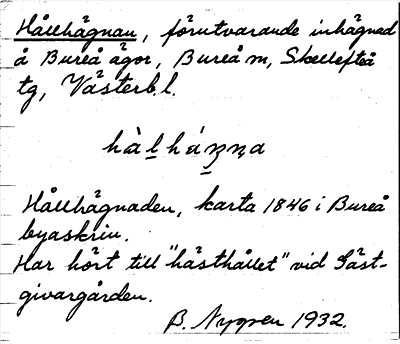 Hållhägnan, förutvarande inhägnad
å Bureå ägor, Bureå m, Skellefteå
tg, Västerb.l.
hàl̲há̲n̲n̥a
Hållhägnaden, karta 1846 i Bureå
byaskrin.
Har hört till "hästhållet" vid Gäst-
givargården.
B. Nygren 1932.